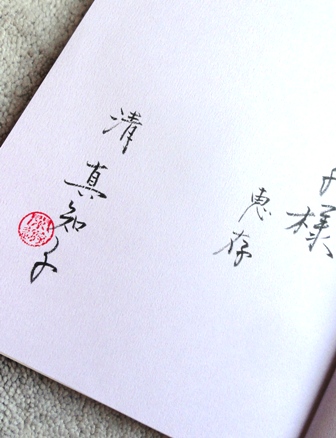 様
恵存
清 真知子